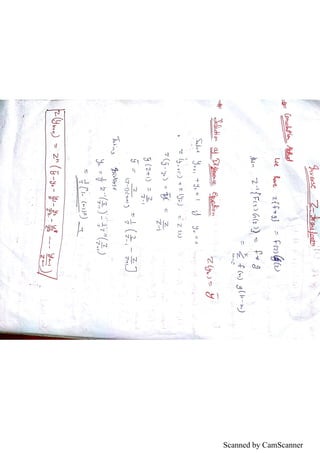 Inverse Z-Transform
* Convolution Method
We have z{f*g} = F(z)G(z)
then z⁻¹{F(z)G(z)} = f*g
= Σ f(m) g(n-m)
* Solution of Difference Equation
z(yₙ) = ȳ
Solve yₙ₊₁ + yₙ = 1 if y₀ = 0
z(yₙ₊₁) + z(yₙ) = z(1)
z(ȳ - y₀) + ȳ = z/(z-1)
ȳ(z+1) = z/(z-1)
ȳ = z/((z-1)(z+1)) = 1/2 [z/(z-1) - z/(z+1)]
Taking inverse
yₙ = 1/2 z⁻¹(z/(z-1)) - 1/2 z⁻¹(z/(z+1))
= 1/2 [1 - (-1)ⁿ]
Scanned by CamScanner